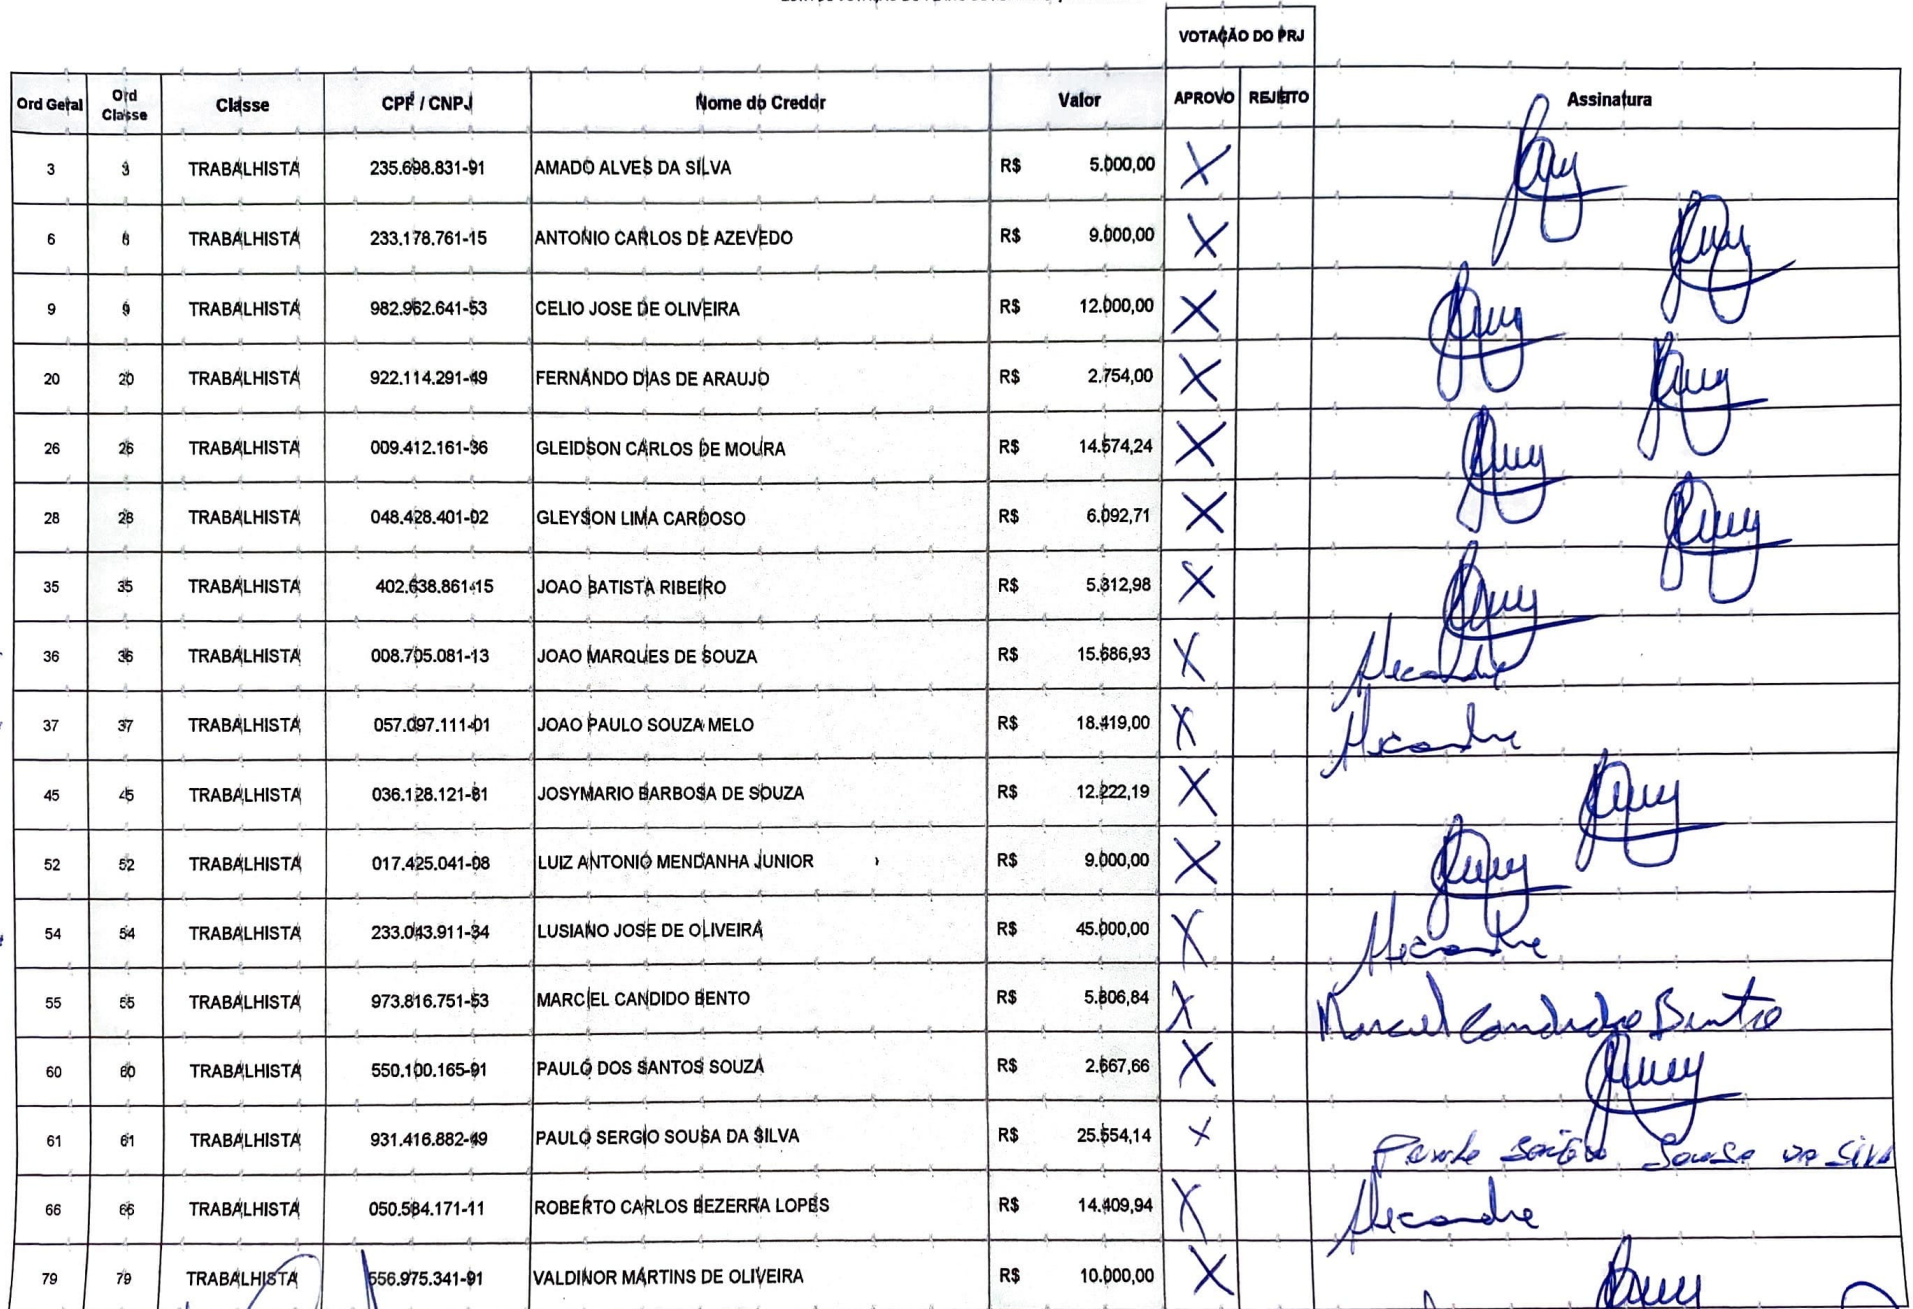 VOTAÇÃO DO PRJ
Ord Geral Ord Classe Classe CPF / CNPJ Nome do Credor Valor APROVO REJEITO Assinatura
3 3 TRABALHISTA 235.698.831-91 AMADO ALVES DA SILVA R$ 5.000,00 X
6 6 TRABALHISTA 233.178.761-15 ANTONIO CARLOS DE AZEVEDO R$ 9.000,00 X
9 9 TRABALHISTA 982.962.641-53 CELIO JOSE DE OLIVEIRA R$ 12.000,00 X
20 20 TRABALHISTA 922.114.291-49 FERNANDO DIAS DE ARAUJO R$ 2.754,00 X
26 26 TRABALHISTA 009.412.161-36 GLEIDSON CARLOS DE MOURA R$ 14.574,24 X
28 28 TRABALHISTA 048.428.401-02 GLEYSON LIMA CARDOSO R$ 6.092,71 X
35 35 TRABALHISTA 402.638.861-15 JOAO BATISTA RIBEIRO R$ 5.312,98 X
36 36 TRABALHISTA 008.705.081-13 JOAO MARQUES DE SOUZA R$ 15.686,93 X Alecandre
37 37 TRABALHISTA 057.097.111-01 JOAO PAULO SOUZA MELO R$ 18.419,00 X Alecandre
45 45 TRABALHISTA 036.128.121-61 JOSYMARIO BARBOSA DE SOUZA R$ 12.222,19 X
52 52 TRABALHISTA 017.425.041-08 LUIZ ANTONIO MENDANHA JUNIOR R$ 9.000,00 X
54 54 TRABALHISTA 233.043.911-34 LUSIANO JOSE DE OLIVEIRA R$ 45.000,00 X Alecandre
55 55 TRABALHISTA 973.816.751-53 MARCIEL CANDIDO BENTO R$ 5.806,84 X Marciel Candido Bento
60 60 TRABALHISTA 550.100.165-91 PAULO DOS SANTOS SOUZA R$ 2.667,66 X
61 61 TRABALHISTA 931.416.882-49 PAULO SERGIO SOUSA DA SILVA R$ 25.554,14 X Paulo Sergio Sousa da Silva
66 66 TRABALHISTA 050.584.171-11 ROBERTO CARLOS BEZERRA LOPES R$ 14.409,94 X Alecandre
79 79 TRABALHISTA 556.975.341-91 VALDINOR MARTINS DE OLIVEIRA R$ 10.000,00 X